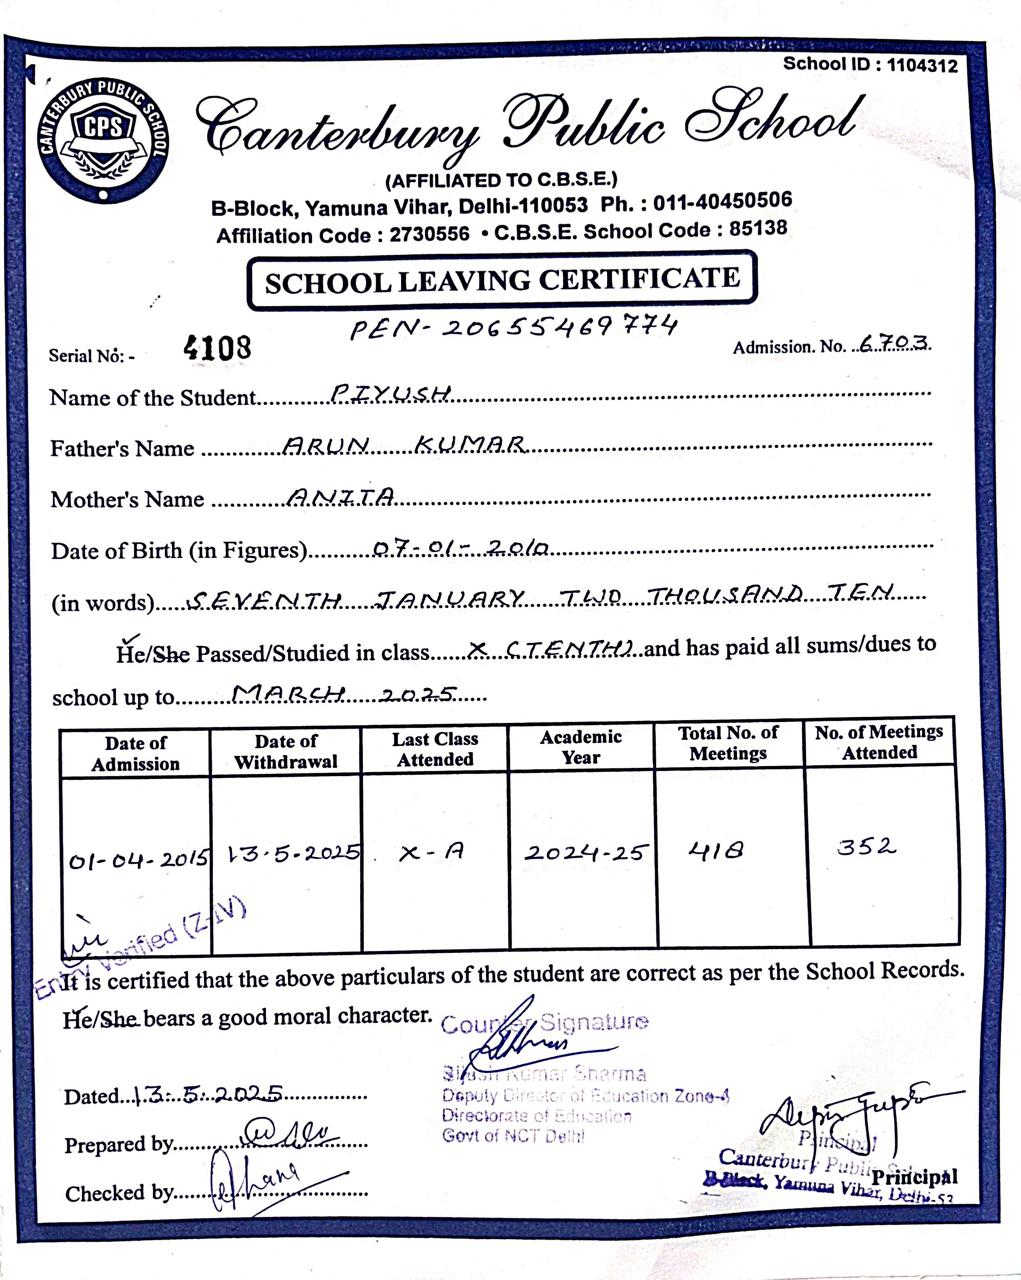 School ID : 1104312
CANTERBURY PUBLIC SCHOOL
CPS
Canterbury Public School
(AFFILIATED TO C.B.S.E.)
B-Block, Yamuna Vihar, Delhi-110053 Ph. : 011-40450506
Affiliation Code : 2730556 • C.B.S.E. School Code : 85138
SCHOOL LEAVING CERTIFICATE
PEN- 20655469774
Serial No: - 4108 Admission. No. 6703.
Name of the Student PIYUSH
Father's Name ARUN KUMAR
Mother's Name ANITA
Date of Birth (in Figures) 07-01-2010
(in words) SEVENTH JANUARY TWO THOUSAND TEN
He/She Passed/Studied in class X (TENTH) and has paid all sums/dues to
school up to MARCH 2025
Date of Admission Date of Withdrawal Last Class Attended Academic Year Total No. of Meetings No. of Meetings Attended
01-04-2015 13.5.2025 X-A 2024-25 418 352
Entry Verified (Z-IV)
It is certified that the above particulars of the student are correct as per the School Records.
He/She bears a good moral character.
Counter Signature
Kumar Sharma
Deputy Director of Education Zone-4
Directorate of Education
Govt of NCT Delhi
Dated 13.5.2025
Prepared by
Checked by
Principal
Canterbury Public
Principal
B-Block, Yamuna Vihar, Delhi-53